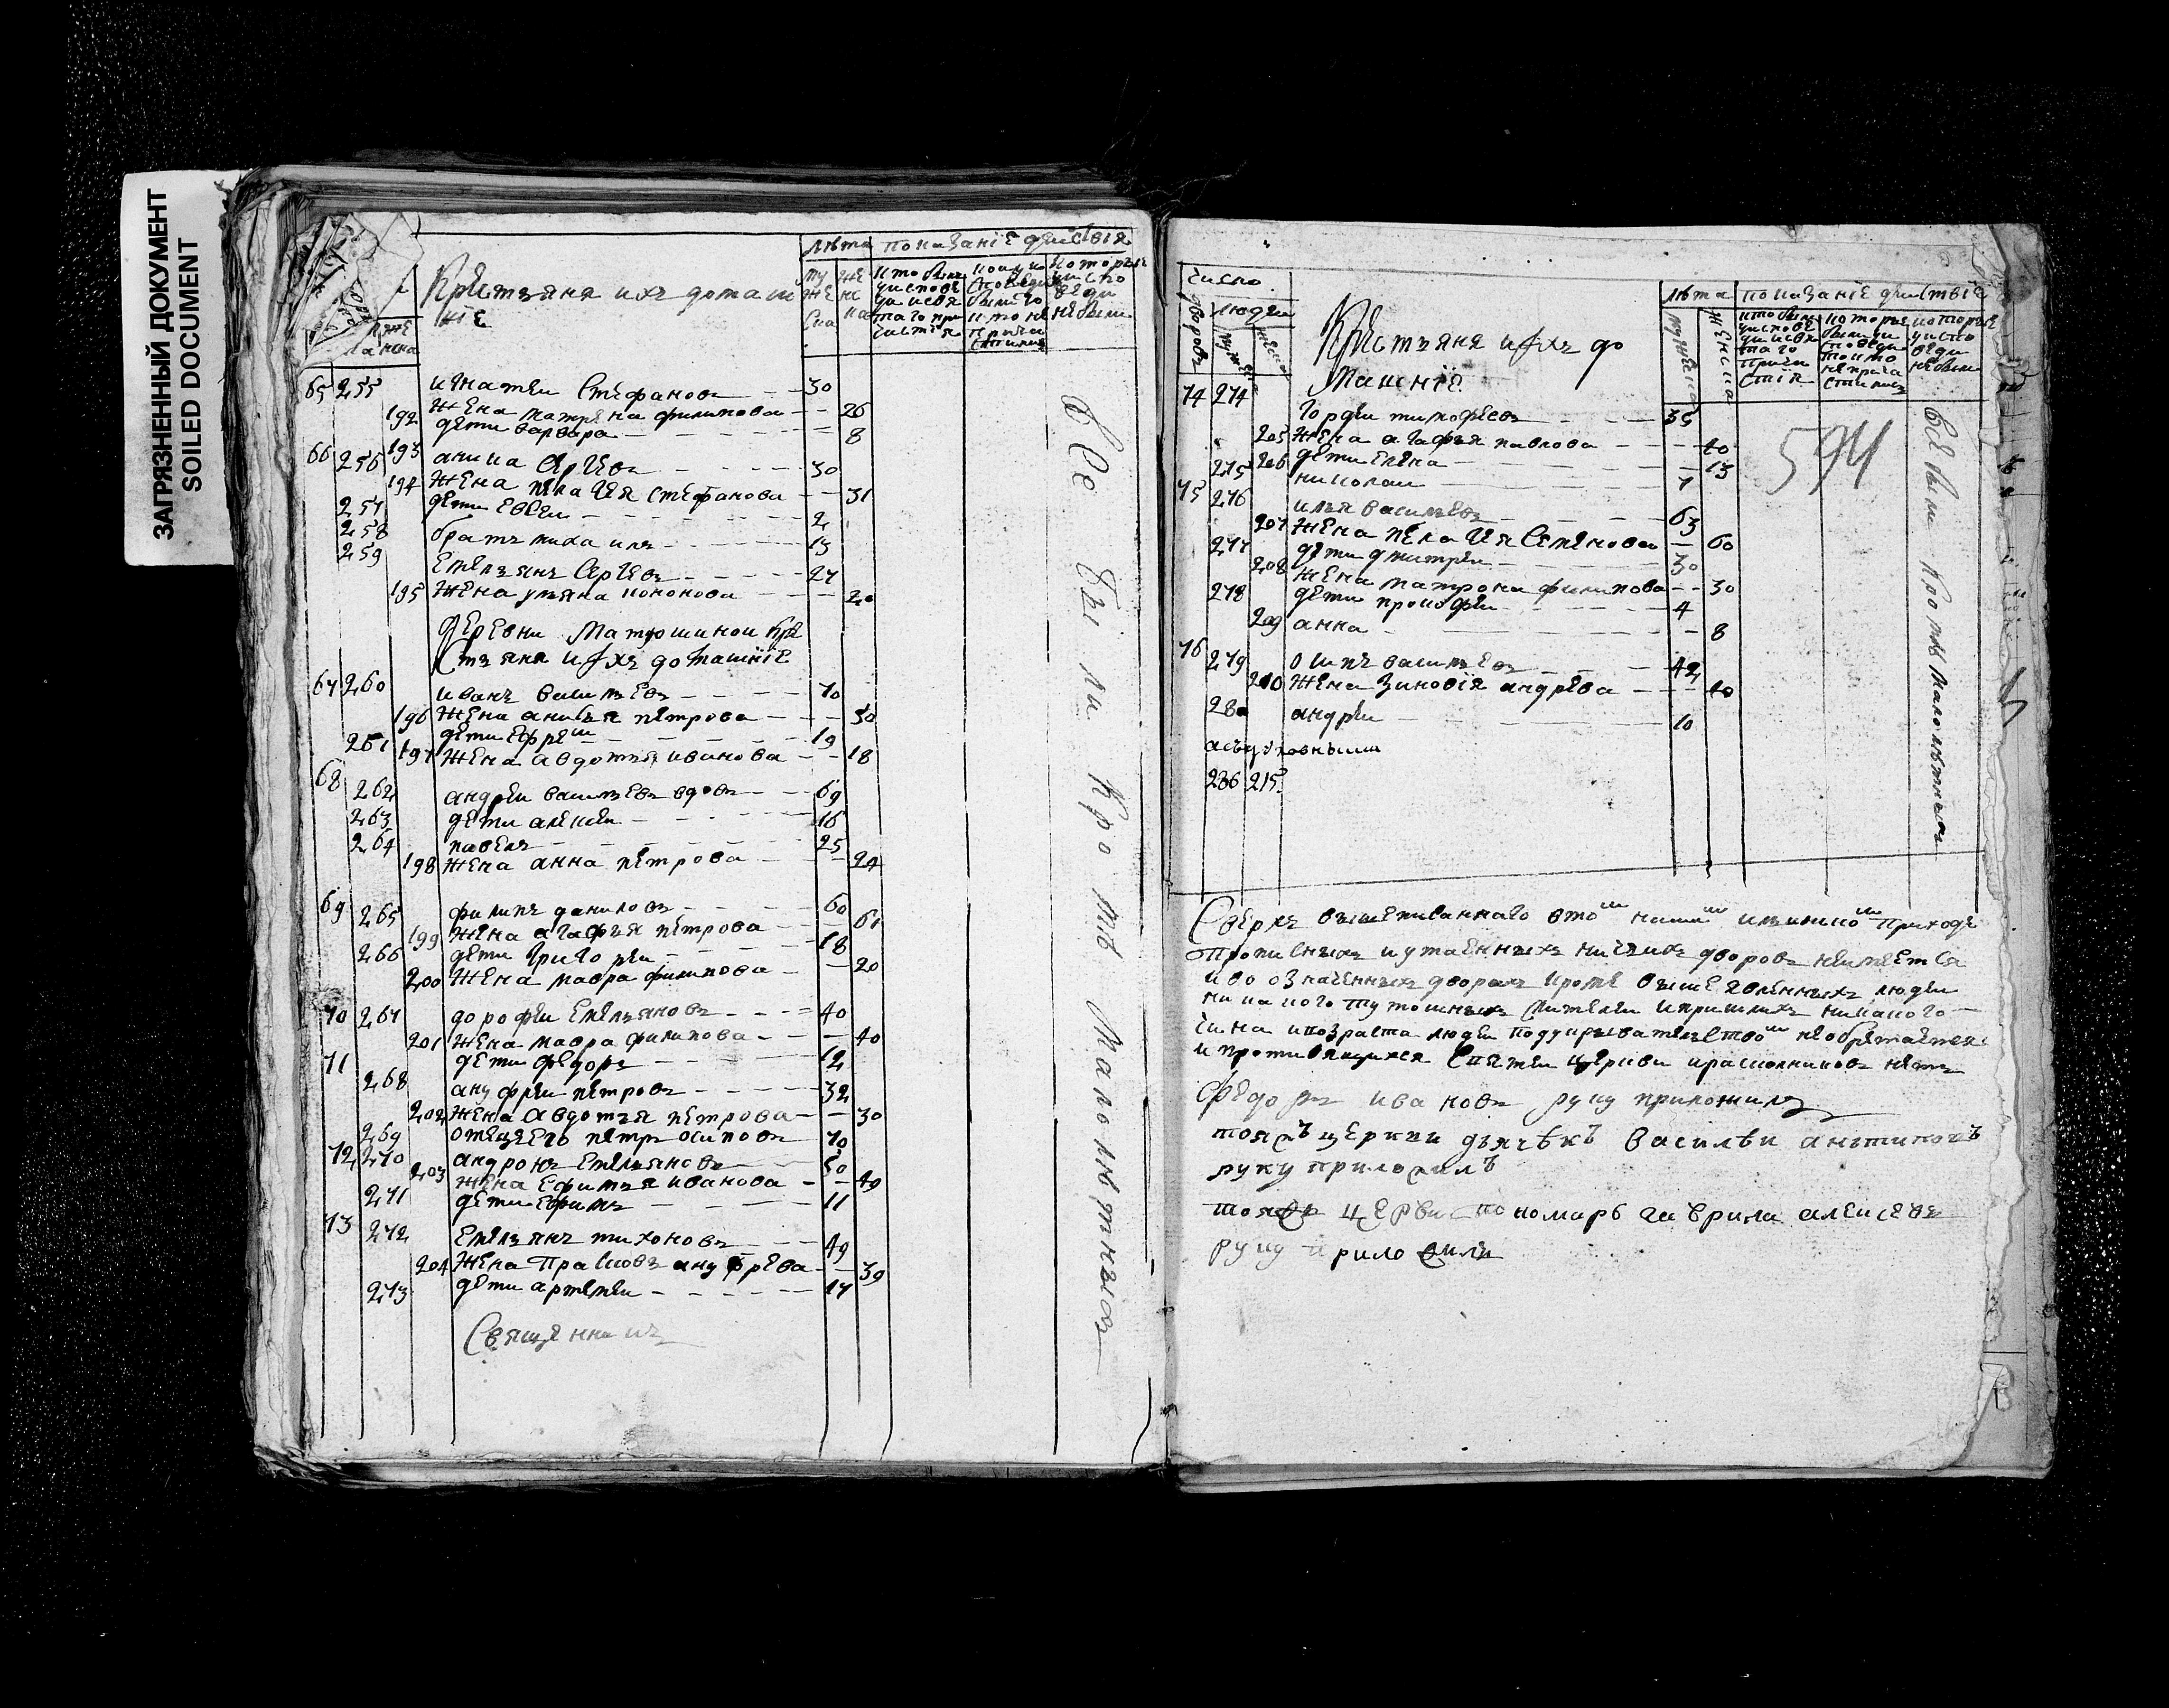 ЗАГРЯЗНЕННЫЙ ДОКУМЕНТ
SOILED DOCUMENT
лѣта показаніе дѣиствія
Крестьяня ихъ домаш
ніе
65 255 игнатеи Стефановъ 30
192 жена матрена филипова 26
193 дети варвара 8
66 256 аника Сергѣевъ 30
194 жена пелагея стефанова 31
257 дети Евсеи 2
258 братъ михаилъ 13
259 Емельянъ Сергѣевъ 27
195 жена ульяна кононова 20
деревни Матюшинои кре
стьяня и ихъ домашніе
67 260 иванъ васильевъ 70
196 жена анисья петрова 50
261 дети Ефремъ 19
197 жена авдотья иванова 18
68 262 андреи васильевъ вдовъ 69
263 дети алексеи 16
264 павелъ 25
198 жена анна петрова 24
69 265 филипъ даниловъ 60
199 жена агафья петрова 61
266 дети григореи 18
200 жена мавра филипова 20
70 267 дорофеи Емельяновъ 40
201 жена мавра филипова 40
71 дети федоръ 12
268 ануфреи петровъ 32
202 жена авдотья петрова 30
269 отецъ его петръ осиповъ 70
72 270 андронъ Емельяновъ 50
203 жена Ефимья иванова 49
271 дети Ефимъ 11
73 272 Емельянъ тихоновъ 49
204 жена Прасковь ануфрева 39
273 дети артемеи 17
Священникъ
все были кроме малолѣтныхъ
число
дворовъ
людеи
лѣта показаніе дѣиствіе
Крестьяня и ихъ до
машніе
74 274 гордеи тимофеевъ 35
205 жена агафья павлова 40
206 дети Елена 13
275 николаи 7
75 276 илья васильевъ 63
207 жена пелагея Семенова 60
277 дети дмитреи 30
208 жена матрона филипова 30
278 дети прокофеи 4
209 анна 8
76 279 осипъ васильевъ 42
210 жена Зиновія андрева 40
280 андреи 10
асъ духовными
286 215
594
все были кроме малолѣтныхъ
Сверхъ вышеписаннаго в томъ нашемъ приходѣ
прописныхъ и утаенныхъ ничьихъ дворовъ неимеетса
и во означенныхъ дворахъ кроме вышеявленныхъ людеи
ни какого тутошныхъ жителеи и пришлыхъ никакого
чина и возраста людеи под укрывателствомъ необретаетса
и противящихся Святеи церкви и расколниковъ нетъ
Федоръ ивановъ руку приложилъ
тояжъ церкви дьячекъ Василеи антиповъ
руку приложилъ
тояжъ церкви пономарь гаврила алексеевъ
руку приложилъ